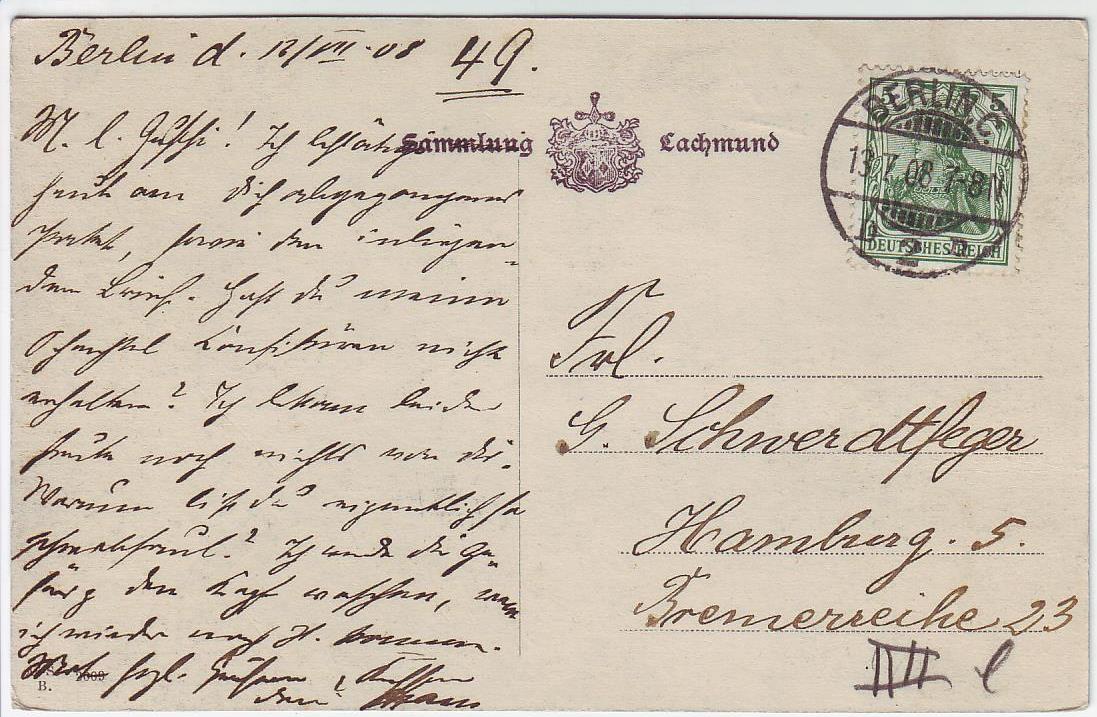 Berlin d. 12/VII. 08 49.
M. l. Guschi! Ich bestätige
heut an Dich abgegangenes
Paket, sowie den inliegen-
den Brief. Hast du meine
Schachtel Konfitüren nicht
erhalten? Ich bekam leider
heute noch nichts von dir.
Warum bist du eigentlich so
schreibfaul? Ich werde dir
den Kopf waschen, wenn
ich wieder nach H. komme.
herzl. Grüßen, Küssen
dein
B.
Sammlung Lachmund
5 5
BERLIN C.
13.7.08.7-8N
2
DEUTSCHES REICH
Frl.
G. Schwerdtfeger
Hamburg. 5.
Bremerreihe 23